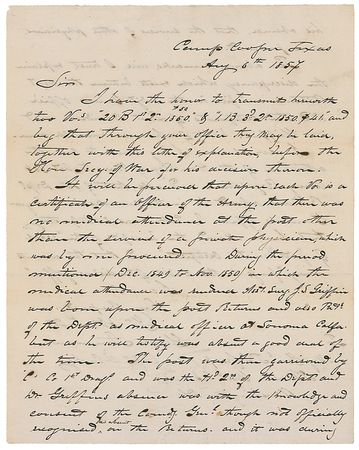 Camp Cooper Texas
Aug 6th 1857
Sir
I have the honor to transmit herewith
two Vos 20 B 1st 2nd 1850 & 7. B. 3d 2r 1850 $41. and
beg that through your office they may be laid,
together with this letter of explanation, before the
Hon Secy. of War for his decision thereon.
It will be perceived that upon each Vo. is a
certificate of an Officer of the Army, that there was
no medical attendance at the post other
than the services of a private physician, which
was by me procured. During the period
mentioned (Dec. 1849 to Nov. 1850) in which the
medical attendance was rendered Asst. Surg J.S. Griffin
was borne upon the post Returns and also
of the Dept. as medical officer at Sonoma Calfa
but as he will testify was absent a good deal of
the time. The post was then garrisoned by
C Co 1st Drags and was the Hd Qrs of the Dept. and
Dr Griffins absence was with the knowledge and
consent of the Comdg Genl. though not officially
recognised, as absent on the Returns. and it was during